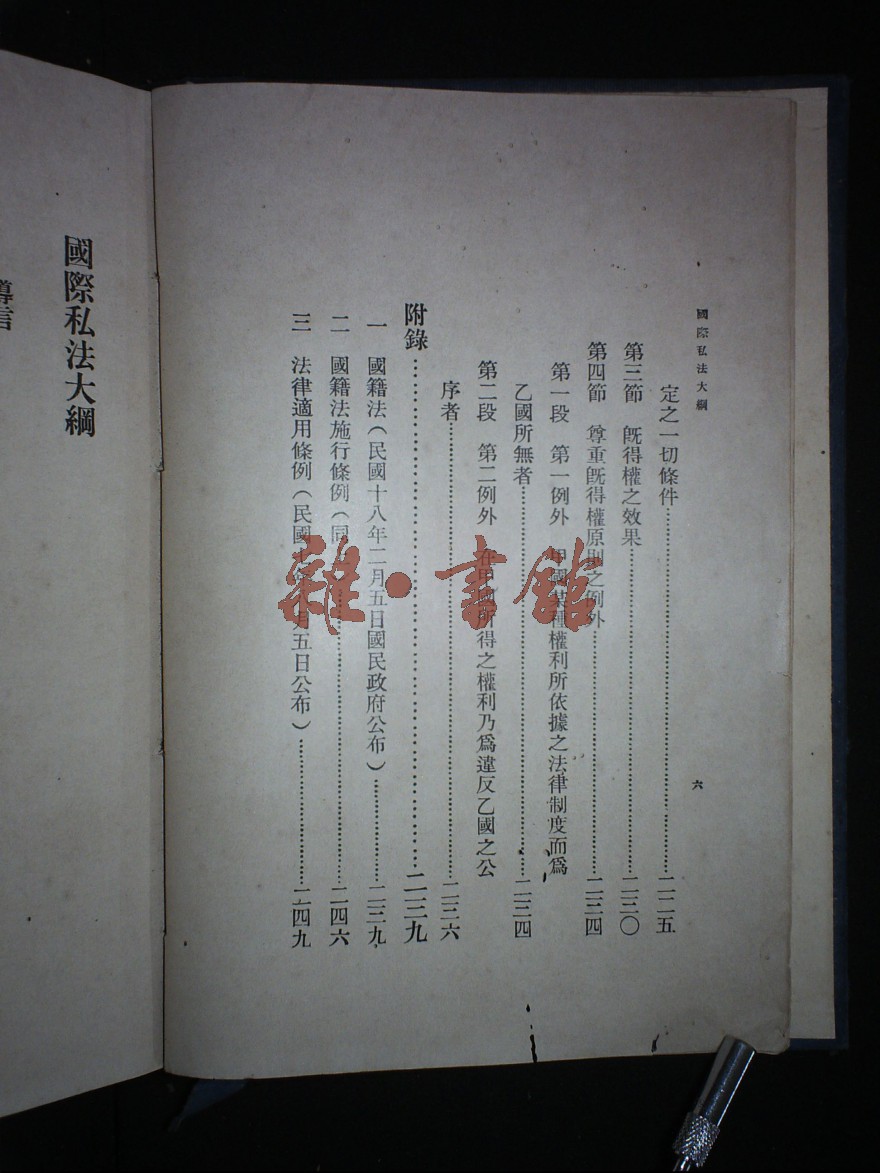 國際私法大綱
六
定之一切條件……二二五
第三節 既得權之效果……二三〇
第四節 尊重既得權原則之例外……二三四
第一段 第一例外 甲國某種權利所依據之法律制度而爲
乙國所無者……二三四
第二段 第二例外 在甲國所得之權利乃爲違反乙國之公
序者……二三六
附錄……二三九
一 國籍法(民國十八年二月五日國民政府公布)……二三九
二 國籍法施行條例(同……二四六
三 法律適用條例(民國 月五日公布)……二四九
國際私法大綱
雜·書館